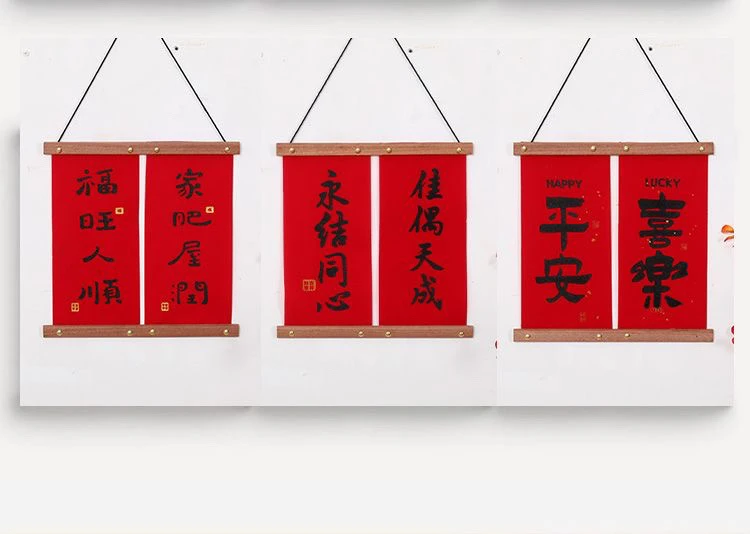 家肥屋潤
福旺人順
佳偶天成
永结同心
HAPPY
平安
LUCKY
喜樂